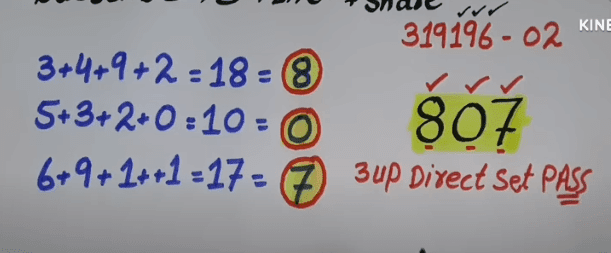 319196 - 02
3+4+9+2 = 18 = 8
5+3+2+0 = 10 = 0
6+9+1++1 = 17 = 7
807
3up Direct Set PASS
KINE